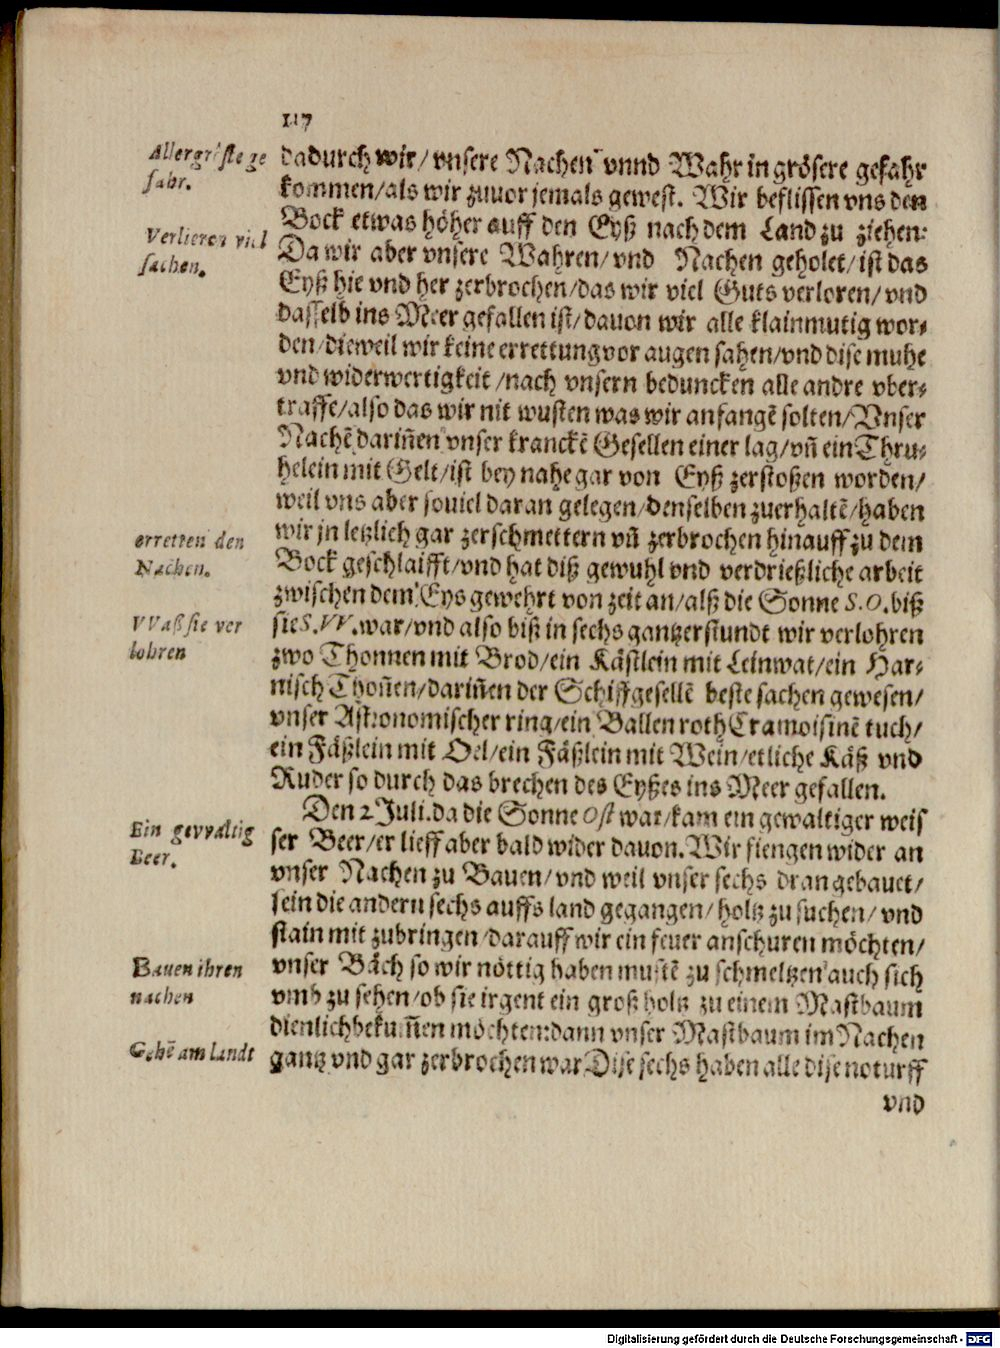 117
Allergröste ge
fahr.
dadurch wir/ vnsere Nachen vnnd Wahr in grösere gefahr
kommen/als wir zuuor jemals gewest. Wir beflissen vns den
Bock etwas höher auff den Eyß nach dem Land zu ziehen:
Verlieren viel
sachen.
Da wir aber vnsere Wahren/ vnd Nachen geholet/ ist das
Eyß hie vnd her zerbrochen/das wir viel Guts verloren/ vnd
dasselb ins Meer gefallen ist/ dauon wir alle klainmutig wor-
den/dieweil wir keine errettung vor augen sahen/vnd dise muhe
vnd widerwertigkeit /nach vnsern beduncken alle andre vber-
traffe/also das wir nit wusten was wir anfangē solten/ Vnser
Nachē dariñen vnser kranckē Gesellen einer lag/ vñ ein Thru-
helein mit Gelt/ist bey nahe gar von Eyß zerstoßen worden/
weil vns aber souiel daran gelegen/denselben zuerhaltē/haben
erretten den
Nachen.
wir jn letzlich gar zerschmettern vñ zerbrochen hinauff zu dem
Bock geschlaifft/vnd hat diß gewuhl vnd verdrießliche arbeit
zwischen dem Eys gewehrt von zeit an/alß die Sonne S.O. biß
VVaß sie ver
lohren
sie S.VV. war/vnd also biß in sechs gantzer stundt wir verlohren
zwo Thonnen mit Brod/ein Kästlein mit Leinwat/ein Har-
nisch Thoñen/dariñen der Schiffgesellē beste sachen gewesen/
vnser Astronomischer ring/ein Ballen roth Cramoisinē tuch/
ein Fäßlein mit Oel/ein Fäßlein mit Wein/etliche Käß vnd
Ruder so durch das brechen des Eyßes ins Meer gefallen.
Ein gevvaltig
Beer.
Den 2 Juli. da die Sonne Ost war/kam ein gewaltiger weis
ser Beer/er lieff aber bald wider dauon. Wir fiengen wider an
vnser Nachen zu Bauen/ vnd weil vnser sechs dran gebauet/
sein die andern sechs auffs land gegangen/ holtz zu suchen/ vnd
stain mit zubringen/darauff wir ein feuer anschuren möchten/
Bauen ihren
nachen
vnser Bäch so wir nöttig haben mustē zu schmeltzen auch sich
vmb zu sehen/ob sie irgent ein groß holtz zu einem Mastbaum
dienlich bekuṁen möchten: dann vnser Mastbaum im Nachen
Gehē am landt
gantz vnd gar zerbrochen war Dise sechs haben alle dise noturff
vnd
Digitalisierung gefördert durch die Deutsche Forschungsgemeinschaft - DFG